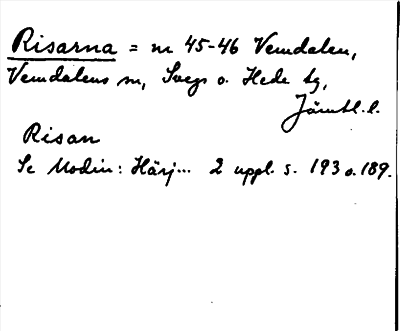 Risarna = nr 45-46 Vemdalen,
Vemdalens sn, Svegs o. Hede tg,
Jämtl. l.
Risan
Se Modin: Härj... 2 uppl. s. 193 o. 189.